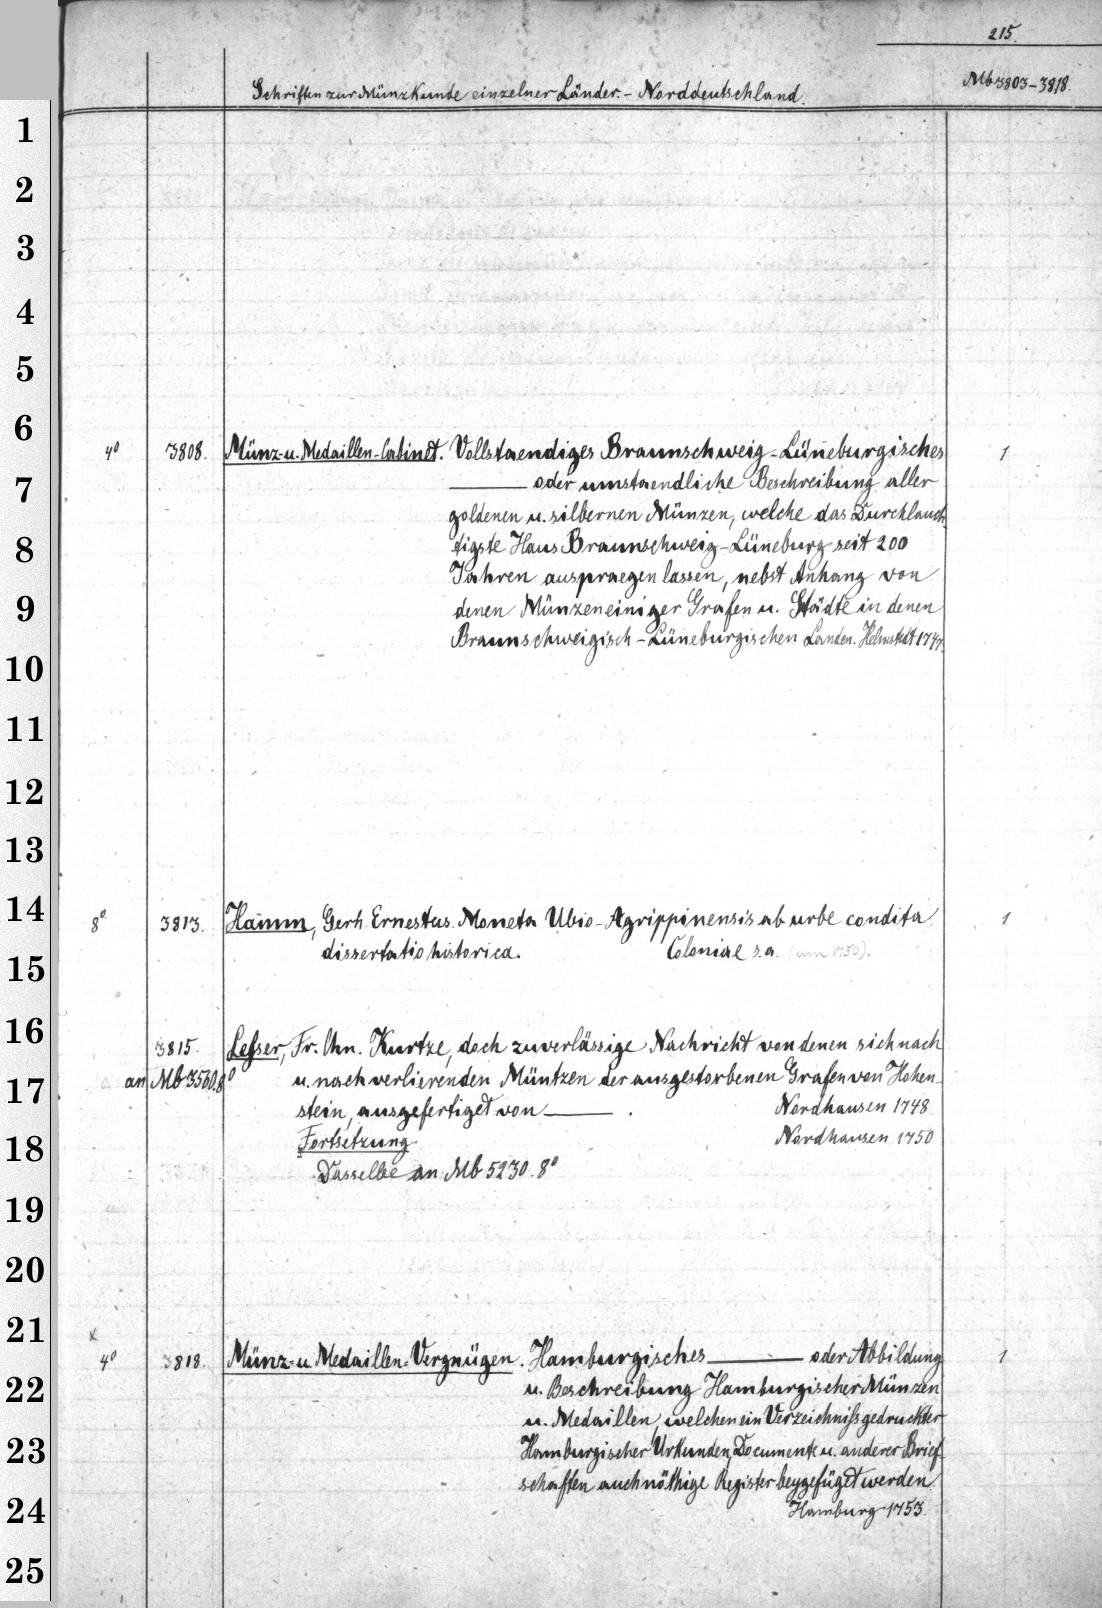 215.
Schriften zur Münzkunde einzelner Länder. - Norddeutschland.
Mb 3803-3818.
1
2
3
4
5
6
4° 3808. Münz- u. Medaillen-Cabinet. Vollstaendiges Braunschweig-Lüneburgisches 1
7
——— oder umstaendliche Beschreibung aller
goldenen u. silbernen Münzen, welche das Durchlauch
8
tigste Haus Braunschweig-Lüneburg seit 200
Jahren auspraegen lassen, nebst Anhang von
9
denen Münzen einiger Grafen u. Städte in denen
Braunschweigisch-Lüneburgischen Landen. Helmstedt 1747.
10
11
12
13
14
8° 3813. Hamm, Gerh. Ernestus. Moneta Ubio-Agrippinensis ab urbe condita 1
dissertatio historica. Coloniae s.a. (um 1750).
15
16
3815. Lesser, Fr. Chn. Kurtze, doch zuverlässige Nachricht von denen sich nach
17
an Mb 3560.8° u. nach verlierenden Müntzen der ausgestorbenen Grafen von Hohen
stein, ausgefertiget von ——— . Nordhausen 1748
18
Fortsetzung Nordhausen 1750
Dasselbe an Mb 5230.8°
19
20
21
x
4° 3818. Münz- u. Medaillen-Vergnügen. Hamburgisches ——— oder Abbildung 1
22
u. Beschreibung Hamburgischer Münzen
u. Medaillen, welchen ein Verzeichniß gedruckter
23
Hamburgischer Urkunden, Documente u. anderer Brief
schaften auch nöthige Register beygefüget werden
24
Hamburg 1753.
25